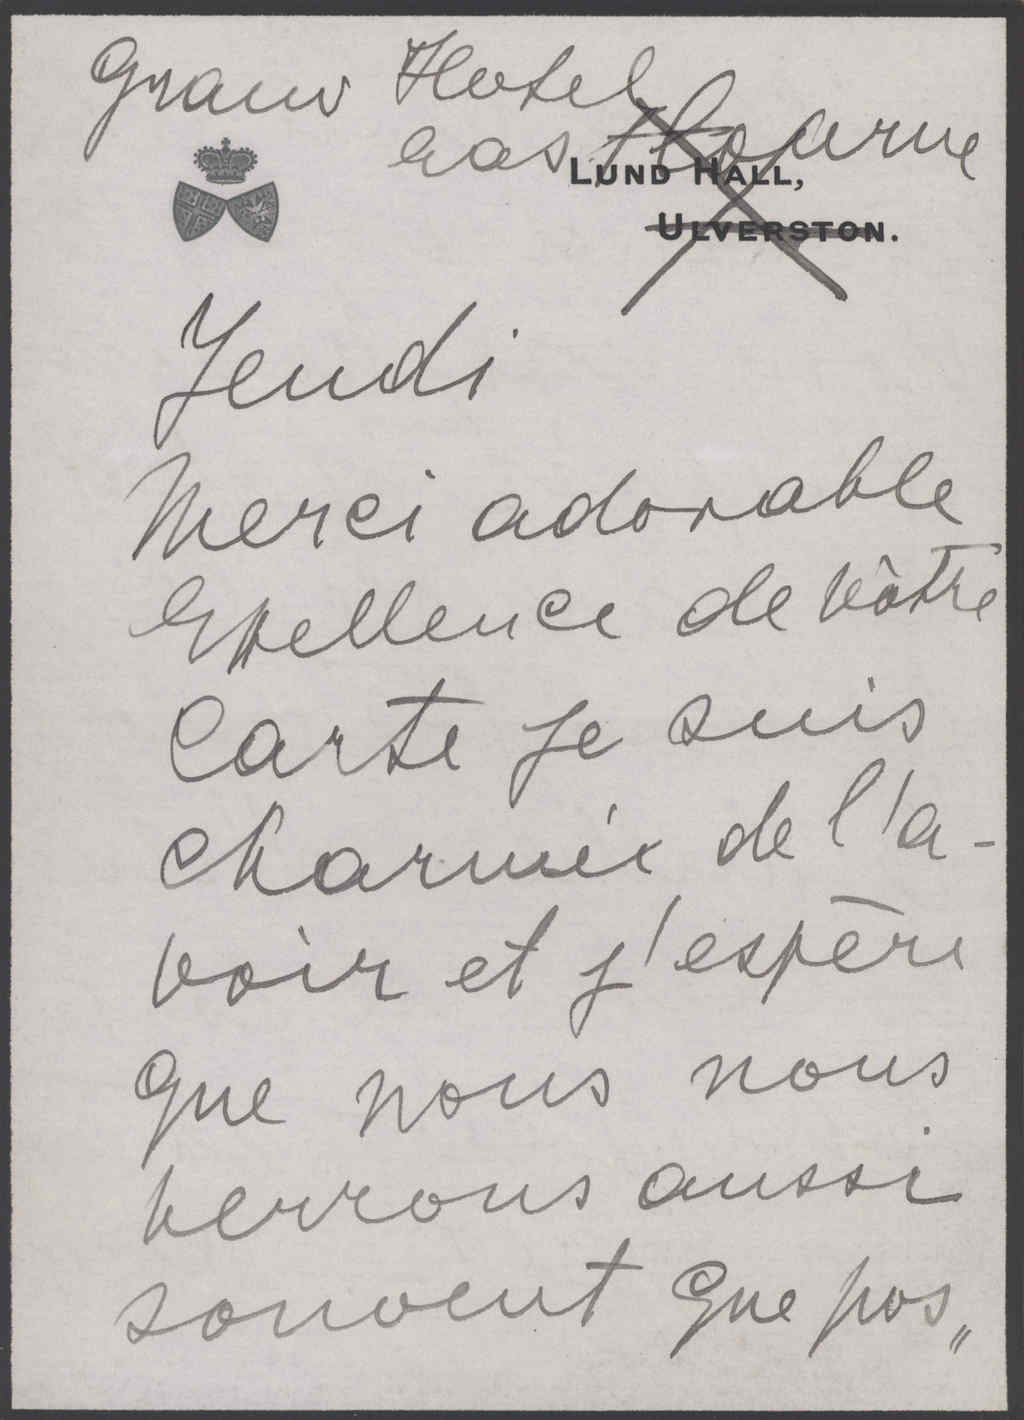 Grand Hotel
Eastbourne
LUND HALL,
ULVERSTON.
Jeudi
Merci adorable
Expellence de vôtre
Carte je suis
charmée de l'a-
voir et j'espère
que nous nous
verrons aussi
souvent que pos„